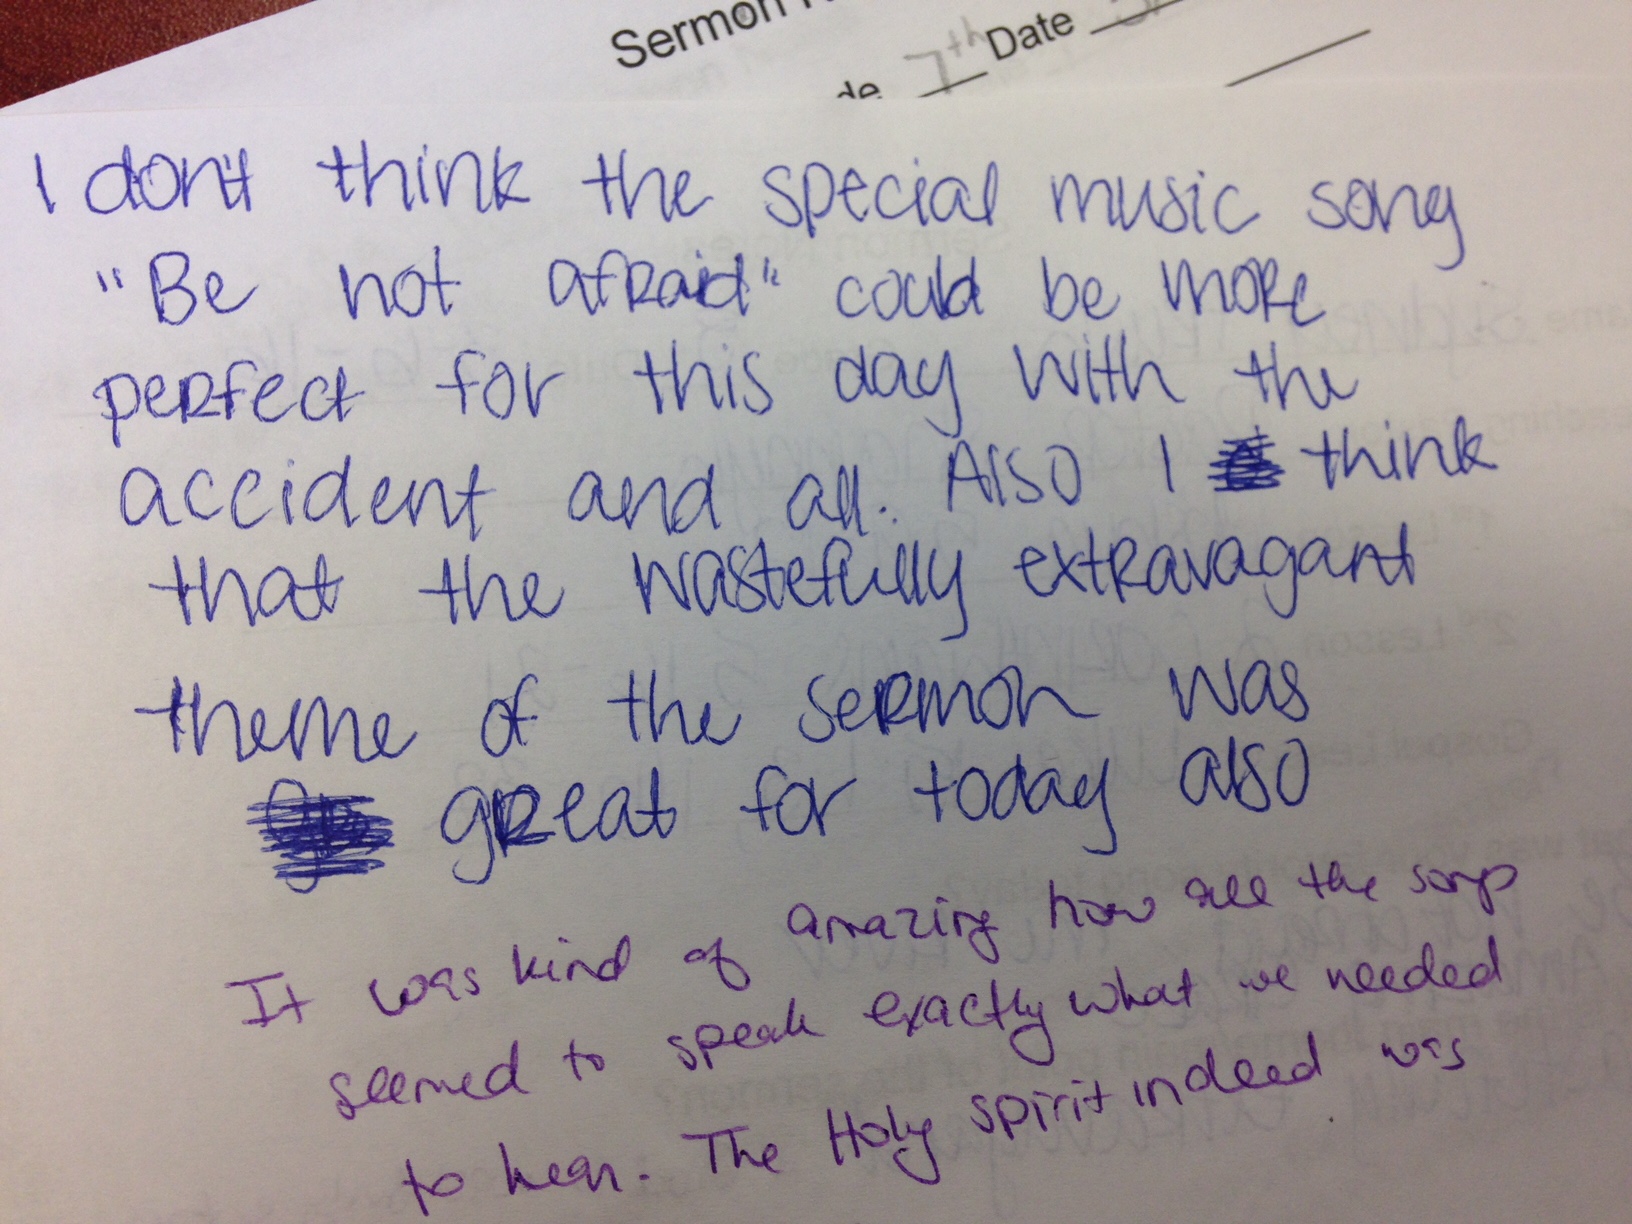 Sermon
Date
de 7th
I don't think the special music song
"Be not afraid" could be more
perfect for this day with the
accident and all. Also I think
that the wastefully extravagant
theme of the sermon was
great for today also
It was kind of amazing how all the songs
seemed to speak exactly what we needed
to hear. The Holy Spirit indeed was